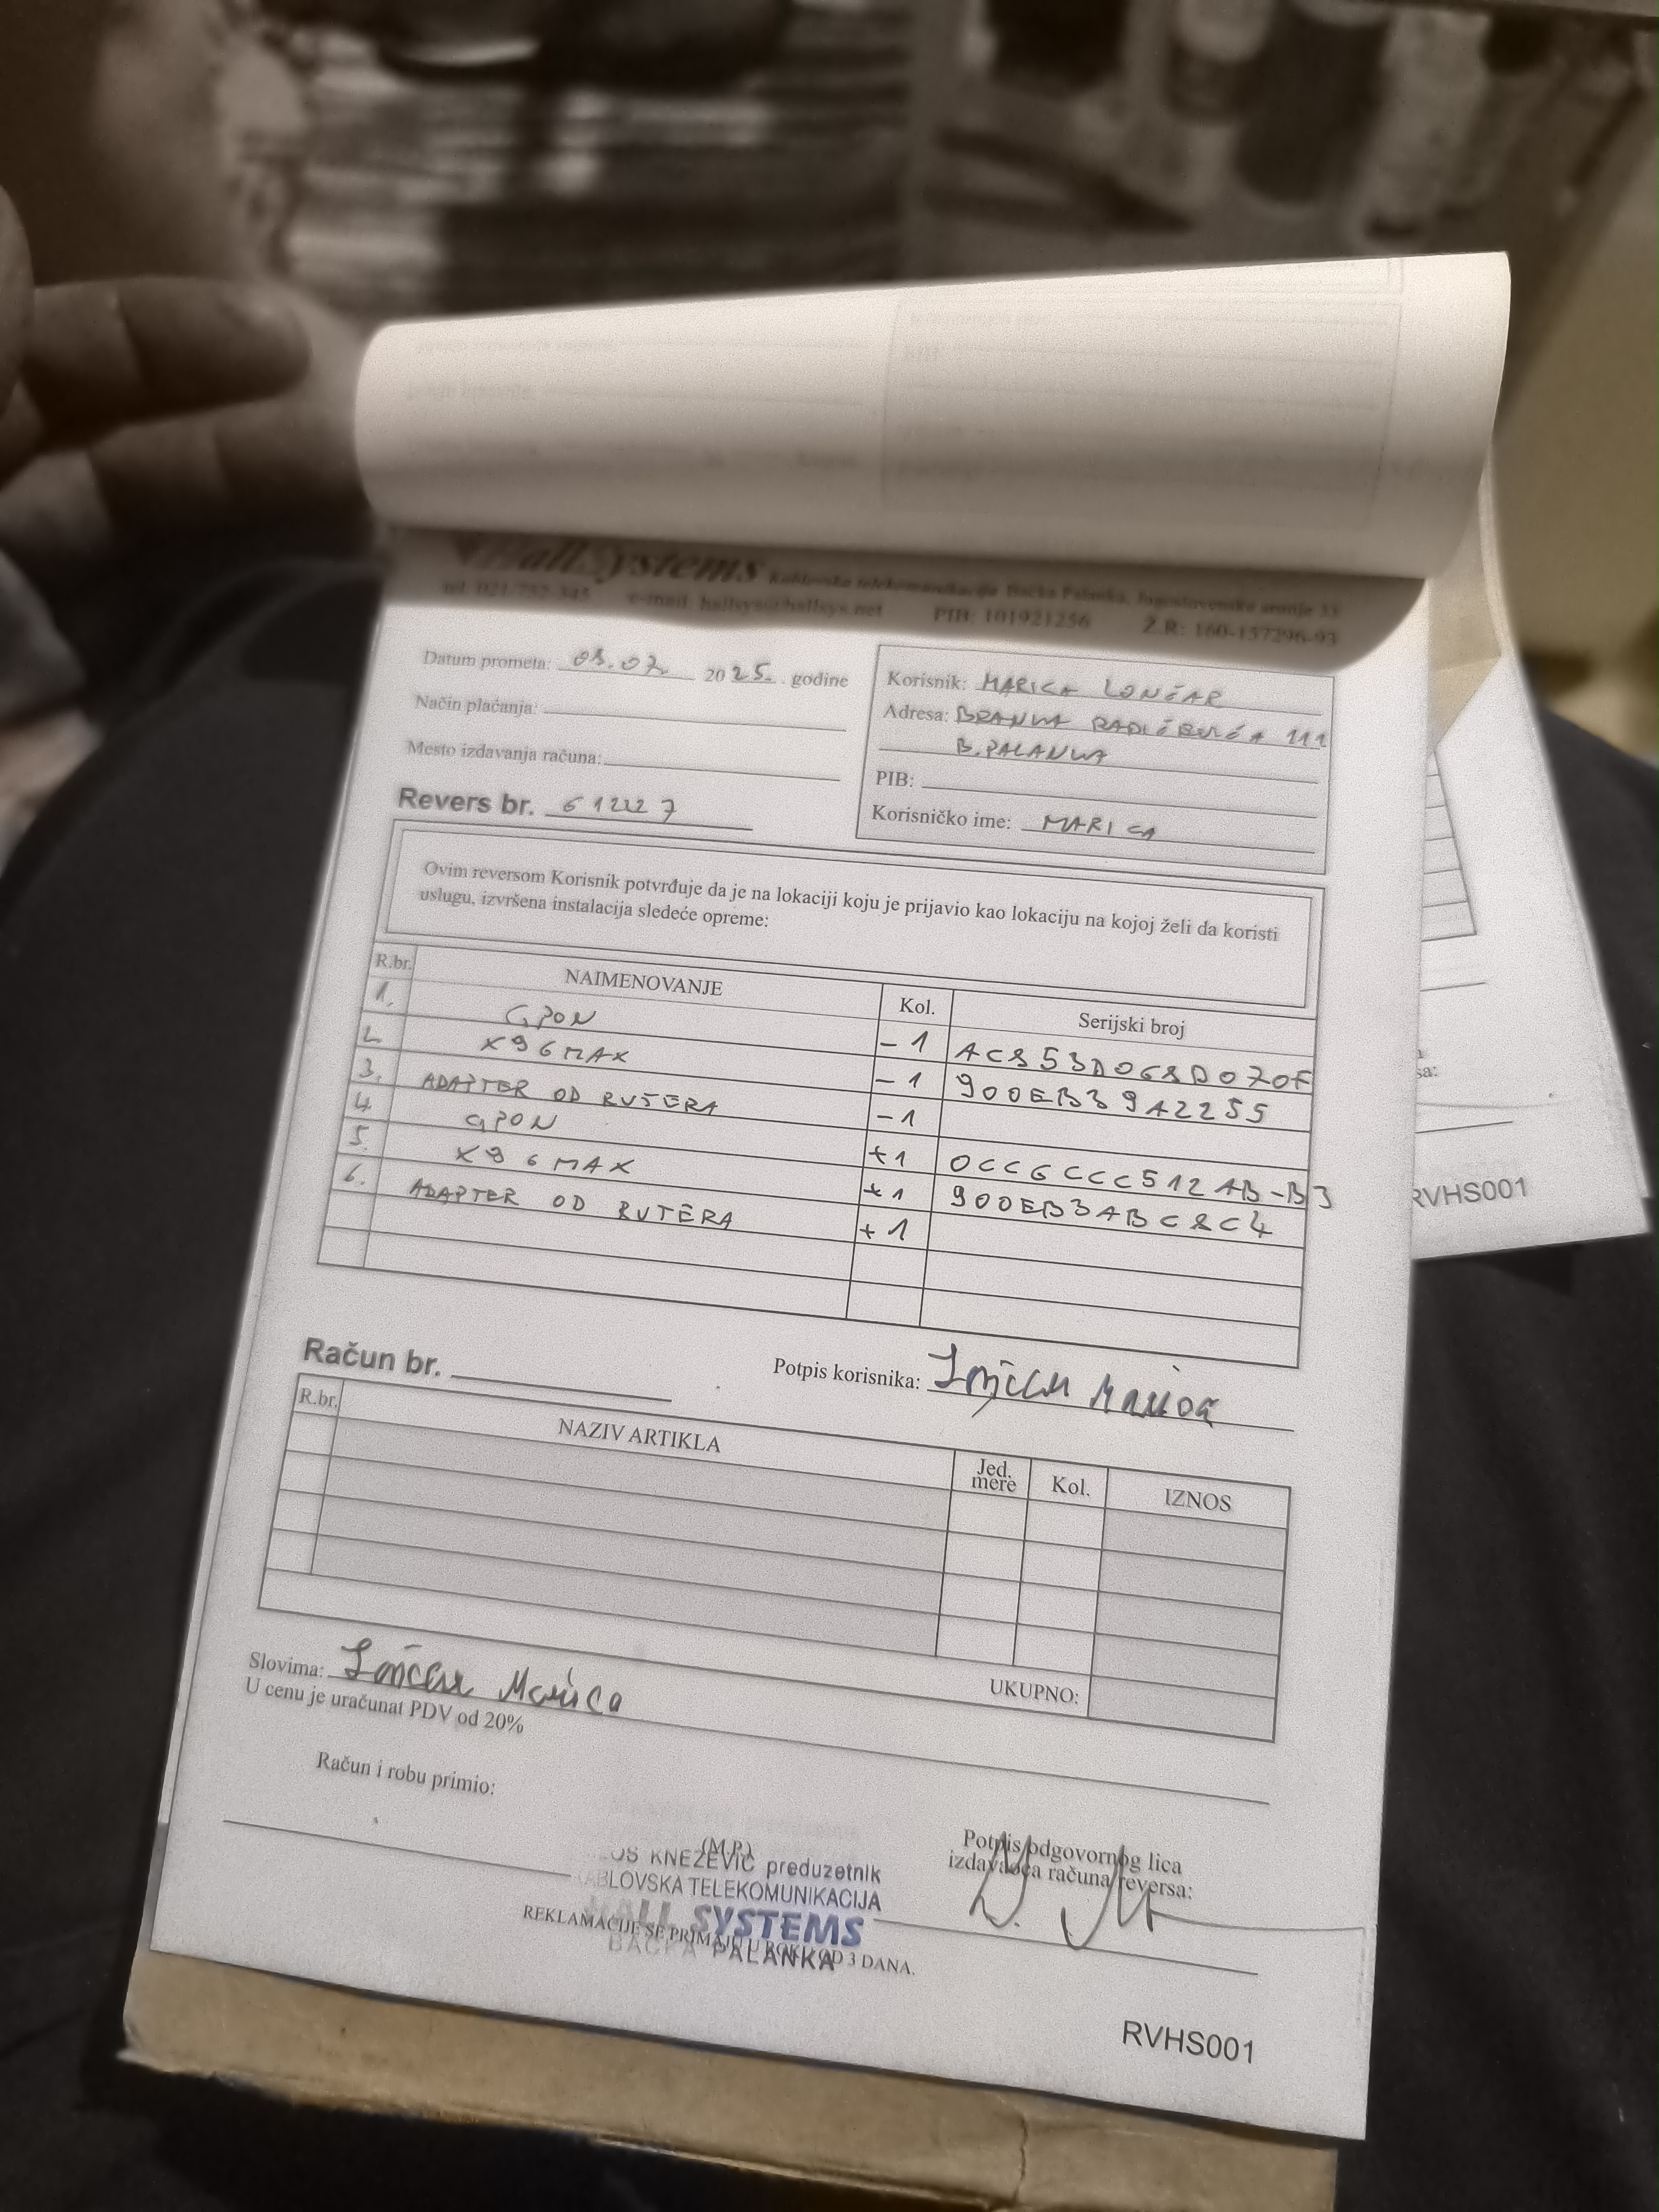 HallSystems Kablovska telekomunikacija Bačka Palanka, Jugoslovenske armije 33
tel. 021/752-345 e-mail: hallsys@hallsys.net PIB: 101921256 Ž.R: 160-157296-93
Datum prometa: 03.07 2025. godine
Način plaćanja:
Mesto izdavanja računa:
Revers br. 61227
Korisnik: MARICA LONČAR
Adresa: BRANKA RADIČEVIĆA 111
B. PALANKA
PIB:
Korisničko ime: MARICA
Ovim reversom Korisnik potvrđuje da je na lokaciji koju je prijavio kao lokaciju na kojoj želi da koristi
uslugu, izvršena instalacija sledeće opreme:
R.br. NAIMENOVANJE Kol. Serijski broj
1. GPON -1 AC853D068D070F
2. X96MAX -1 900EB39A2255
3. ADAPTER OD RUTERA -1
4. GPON +1 0CC6CCC512AB-B3
5. X96MAX +1 900EB3ABC8C4
6. ADAPTER OD RUTERA +1
Račun br.
Potpis korisnika: Lončar Marica
R.br. NAZIV ARTIKLA Jed. mere Kol. IZNOS
UKUPNO:
Slovima: Lončar Marica
U cenu je uračunat PDV od 20%
Račun i robu primio:
(M.P.)
KNEŽEVIĆ preduzetnik
KABLOVSKA TELEKOMUNIKACIJA
HALL SYSTEMS
BAČKA PALANKA
Potpis odgovornog lica
izdavaoca računa reversa:
REKLAMACIJE SE PRIMAJU U ROKU OD 3 DANA.
RVHS001
RVHS001